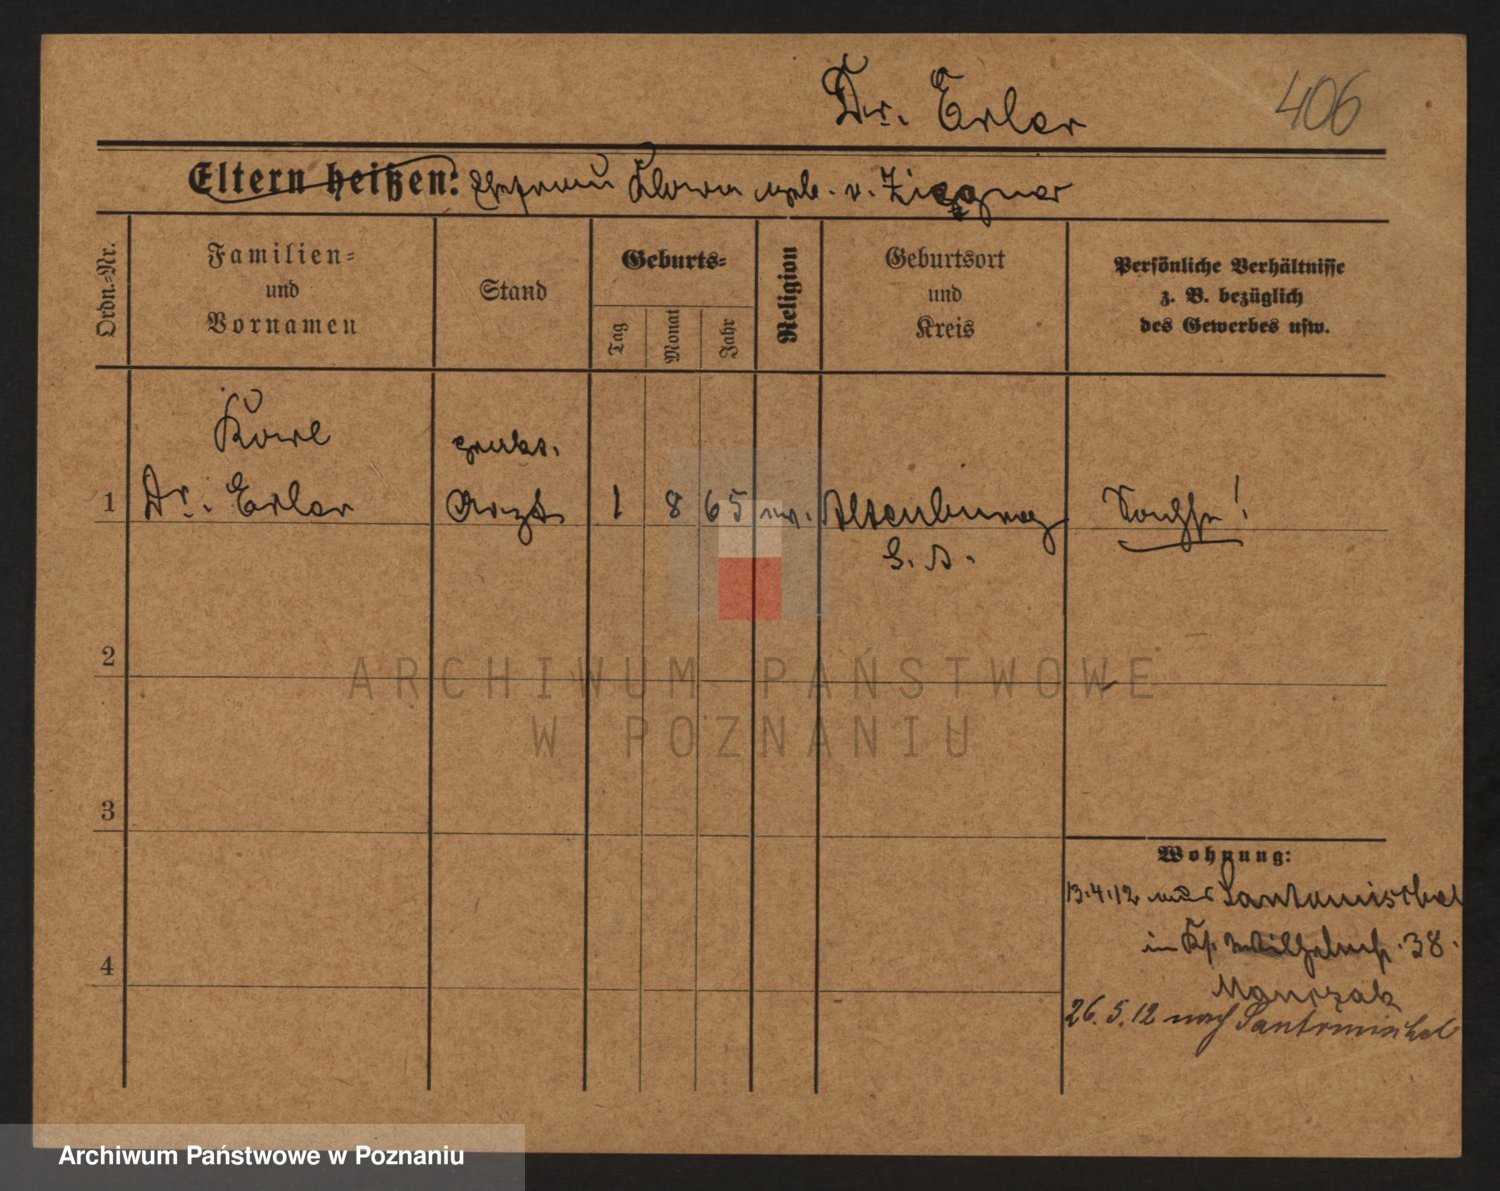 Dr. Erler
406
Eltern heißen: Ehefrau Klara geb. v. Ziegner
Ordn.-Nr.
Familien-
und
Vornamen
Stand
Geburts-
Tag
Monat
Jahr
Religion
Geburtsort
und
Kreis
Persönliche Verhältnisse
z. B. bezüglich
des Gewerbes usw.
Karl
1 Dr. Erler
prakt.
Arzt
1 8 65 ev.
Altenburg
S. A.
Sachse!
2
3
4
Wohnung:
13.4.12 aus Santomischel
in Ks. Wilhelmstr. 38.
Manczak
26.5.12 nach Santomischel
ARCHIWUM PAŃSTWOWE
W POZNANIU
Archiwum Państwowe w Poznaniu